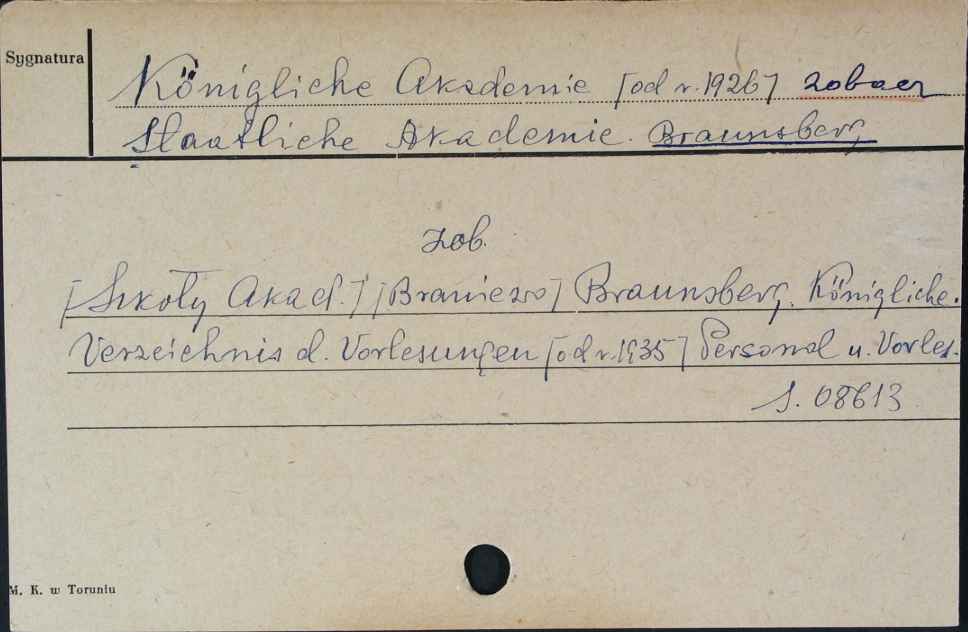 Sygnatura
Königliche Akademie [od r. 1926] zobacz
Staatliche Akademie. Braunsberg
zob.
[Szkoły Akad.] [Braniewo] Braunsberg. Königliche.
Verzeichnis d. Vorlesungen [od r. 1935] Personal u. Vorles.
S. 08613
M. K. w Toruniu